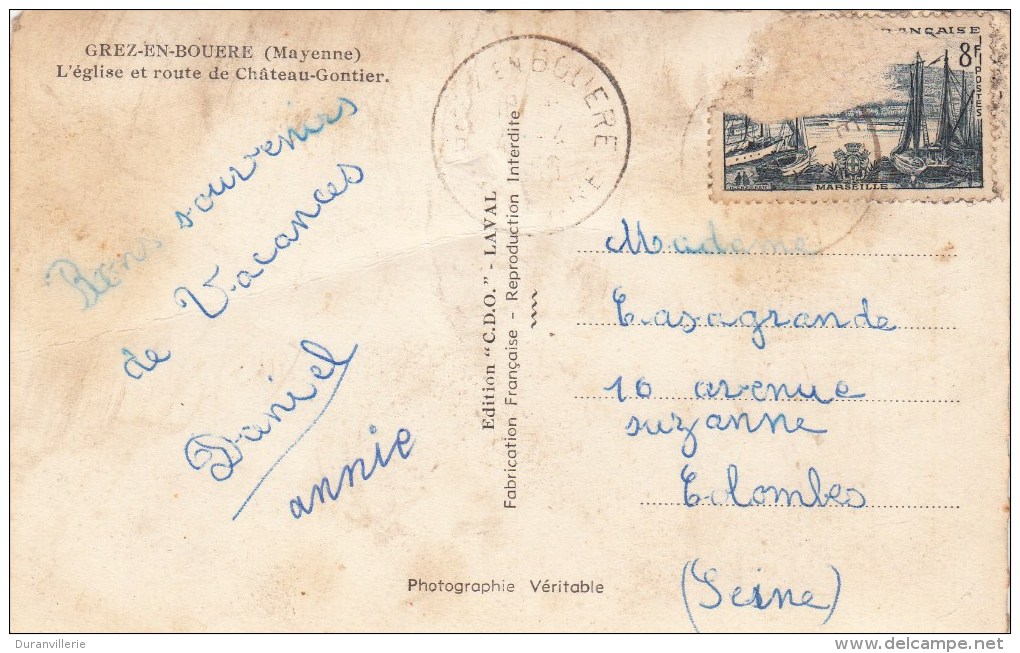 GREZ-EN-BOUERE (Mayenne)
L'église et route de Château-Gontier.
Bons souvenirs
de Vacances
Daniel
annie
Edition "C.D.O." - LAVAL
Fabrication Française - Reproduction Interdite
Photographie Véritable
EN BOUERE
8F
POSTES
MARSEILLE
Madame
Casagrande
10 avenue
suzanne
Colombes
(Seine)
Duranvillerie
delcampe.net